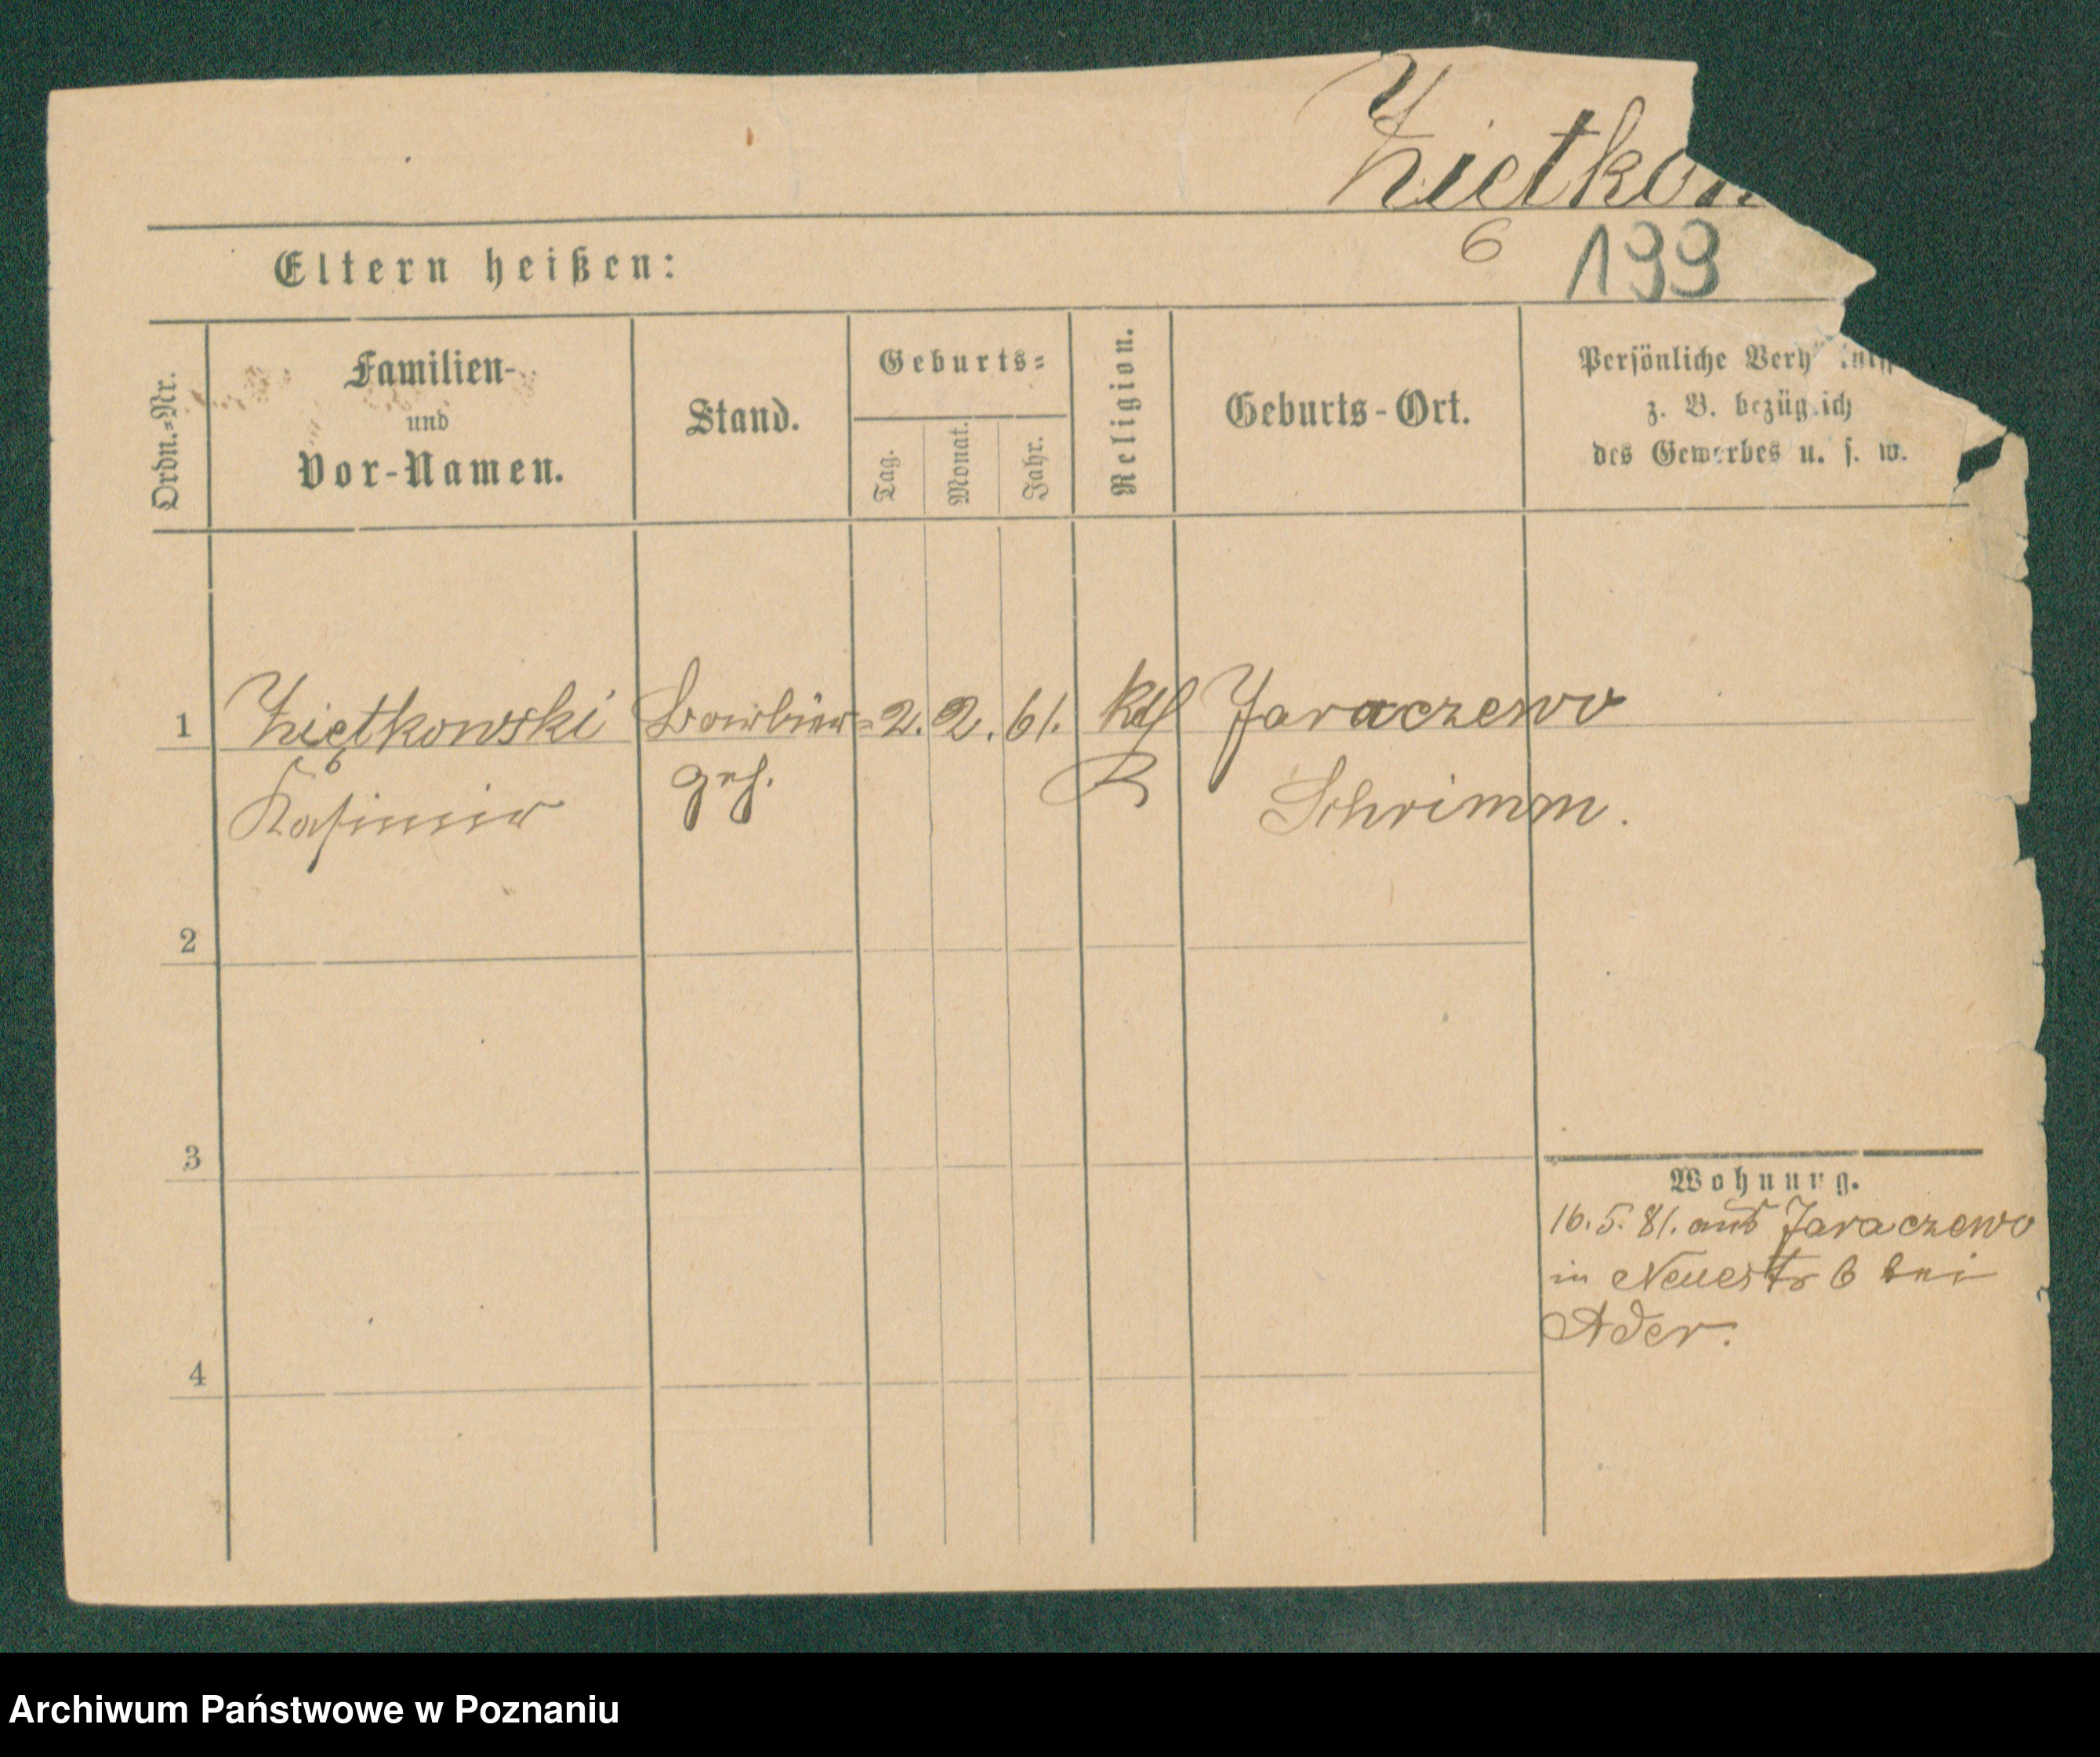 Zietkow
6 199
Eltern heißen:
Ordn.-Nr.
Familien-
und
Vor-Namen.
Stand.
Geburts-
Tag.
Monat.
Jahr.
Religion.
Geburts-Ort.
Persönliche Verh
z. B. bezüglich
des Gewerbes u. s. w.
1 Zietkowski Barbier- 2. 2. 61. kth Jaraczewo
Kasimir geh. Schrimm.
2
3
4
Wohnung.
16. 5. 81. aus Jaraczewo
in Neuestr 6 bei
Ader.
Archiwum Państwowe w Poznaniu